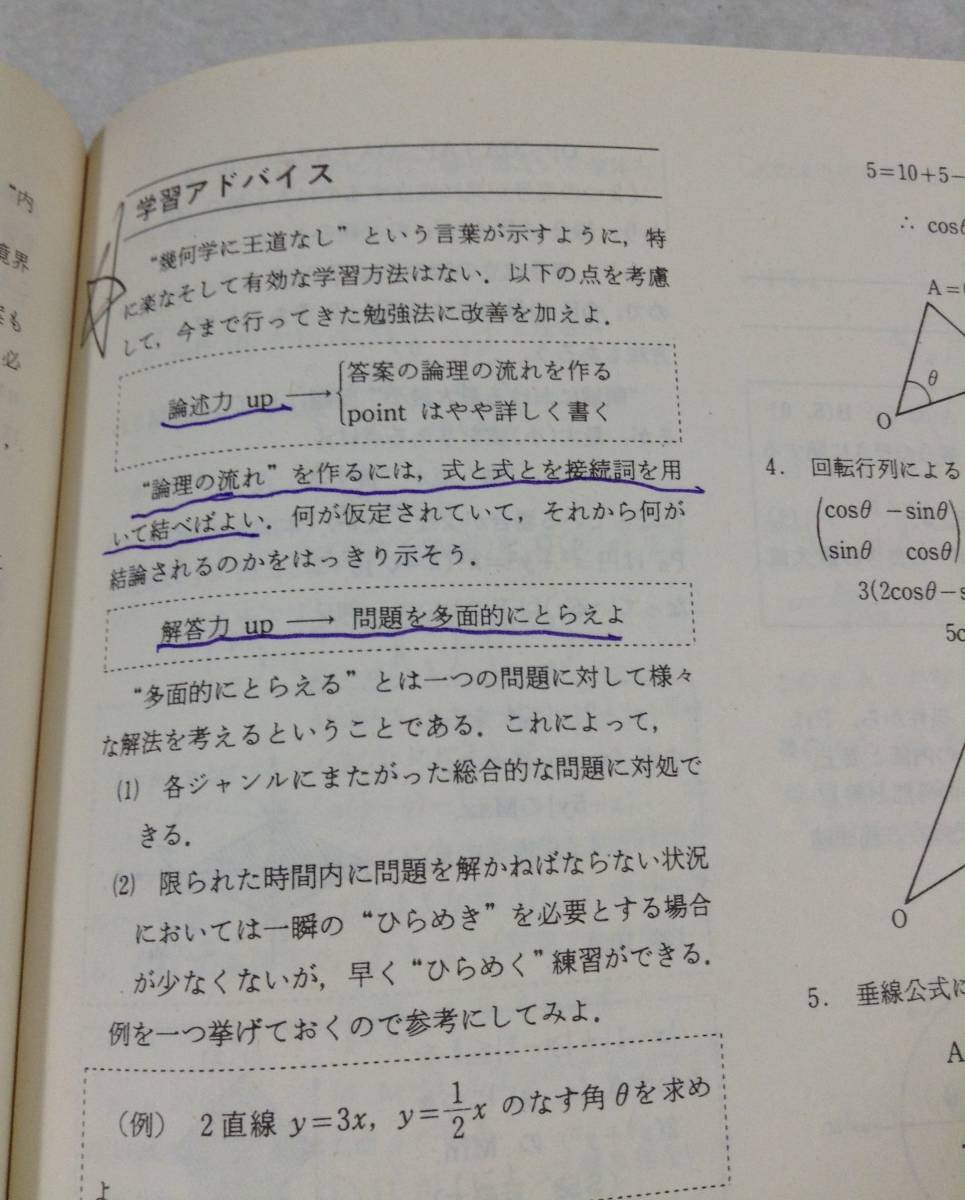 内
境界
も
必
学習アドバイス
“幾何学に王道なし”という言葉が示すように，特
に楽なそして有効な学習方法はない．以下の点を考慮
して，今まで行ってきた勉強法に改善を加えよ．
論述力 up ⟶ {答案の論理の流れを作る
point はやや詳しく書く
“論理の流れ”を作るには，式と式とを接続詞を用
いて結べばよい．何が仮定されていて，それから何が
結論されるのかをはっきり示そう．
解答力 up ⟶ 問題を多面的にとらえよ
“多面的にとらえる”とは一つの問題に対して様々
な解法を考えるということである．これによって，
(1) 各ジャンルにまたがった総合的な問題に対処で
きる．
(2) 限られた時間内に問題を解かねばならない状況
においては一瞬の“ひらめき”を必要とする場合
が少なくないが，早く“ひらめく”練習ができる．
例を一つ挙げておくので参考にしてみよ．
(例) 2直線 y=3x, y=1/2x のなす角θを求め
よ
5=10+5−
∴ cosθ
A=(
θ
O
4. 回転行列による
(cosθ −sinθ)
(sinθ cosθ)
3(2cosθ−s
5c
O
5. 垂線公式に
A